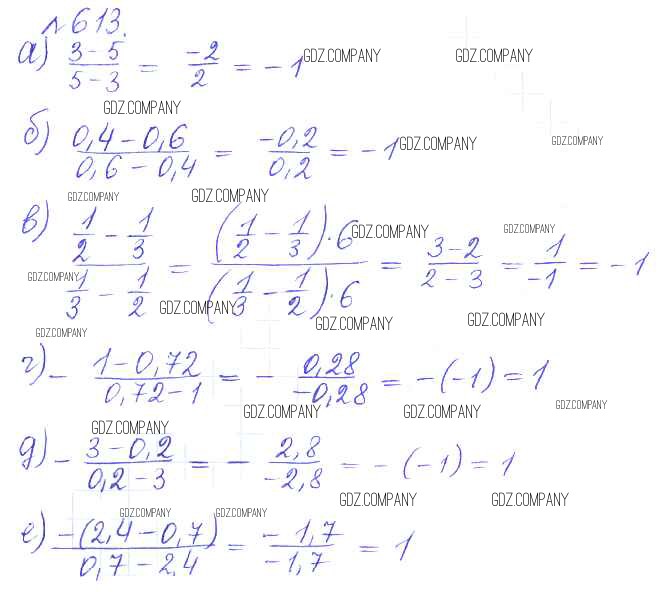 №613.
а) (3-5)/(5-3) = -2/2 = -1 GDZ.COMPANY GDZ.COMPANY
GDZ.COMPANY
б) (0,4-0,6)/(0,6-0,4) = -0,2/0,2 = -1 GDZ.COMPANY GDZ.COMPANY
GDZ.COMPANY GDZ.COMPANY
в) (1/2 - 1/3)/(1/3 - 1/2) = ((1/2 - 1/3)·6)/((1/3 - 1/2)·6) = (3-2)/(2-3) = 1/-1 = -1 GDZ.COMPANY GDZ.COMPANY
GDZ.COMPANY GDZ.COMPANY GDZ.COMPANY GDZ.COMPANY
GDZ.COMPANY
г) - (1-0,72)/(0,72-1) = - 0,28/-0,28 = -(-1) = 1
GDZ.COMPANY GDZ.COMPANY GDZ.COMPANY
GDZ.COMPANY
д) - (3-0,2)/(0,2-3) = - 2,8/-2,8 = -(-1) = 1
GDZ.COMPANY GDZ.COMPANY
GDZ.COMPANY GDZ.COMPANY
е) -(2,4-0,7)/(0,7-2,4) = -1,7/-1,7 = 1